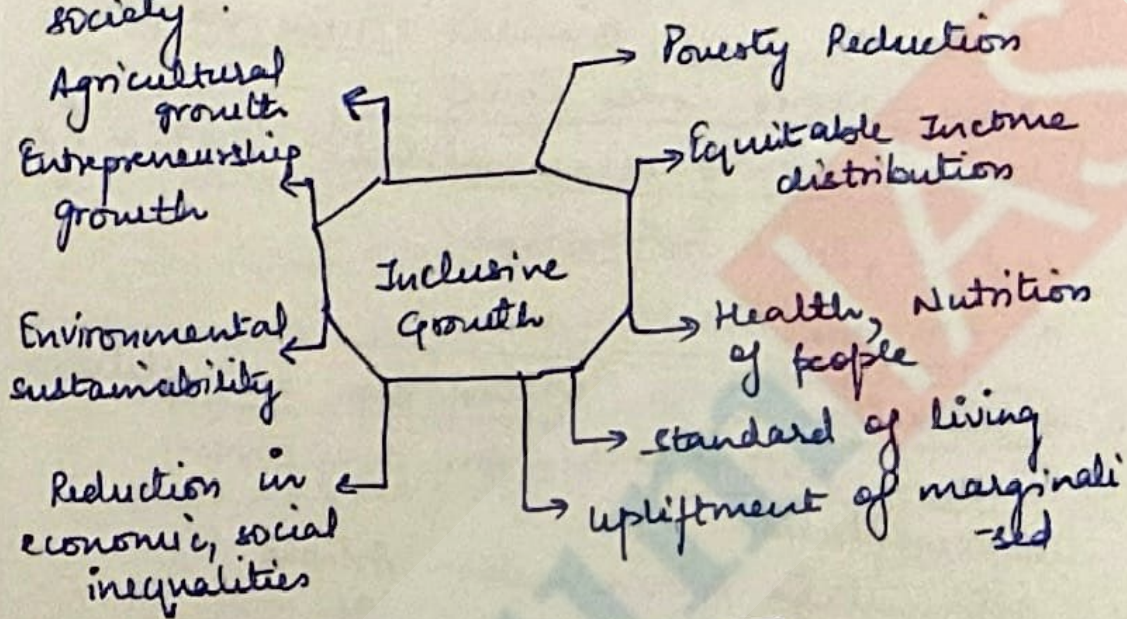 society.
Agricultural
growth
Entrepreneurship
growth
Environmental
sustainability
Reduction in
economic, social
inequalities
Inclusive
Growth
Poverty Reduction
Equitable Income
distribution
Health, Nutrition
of people
standard of living
upliftment of marginali
-sed
IAS